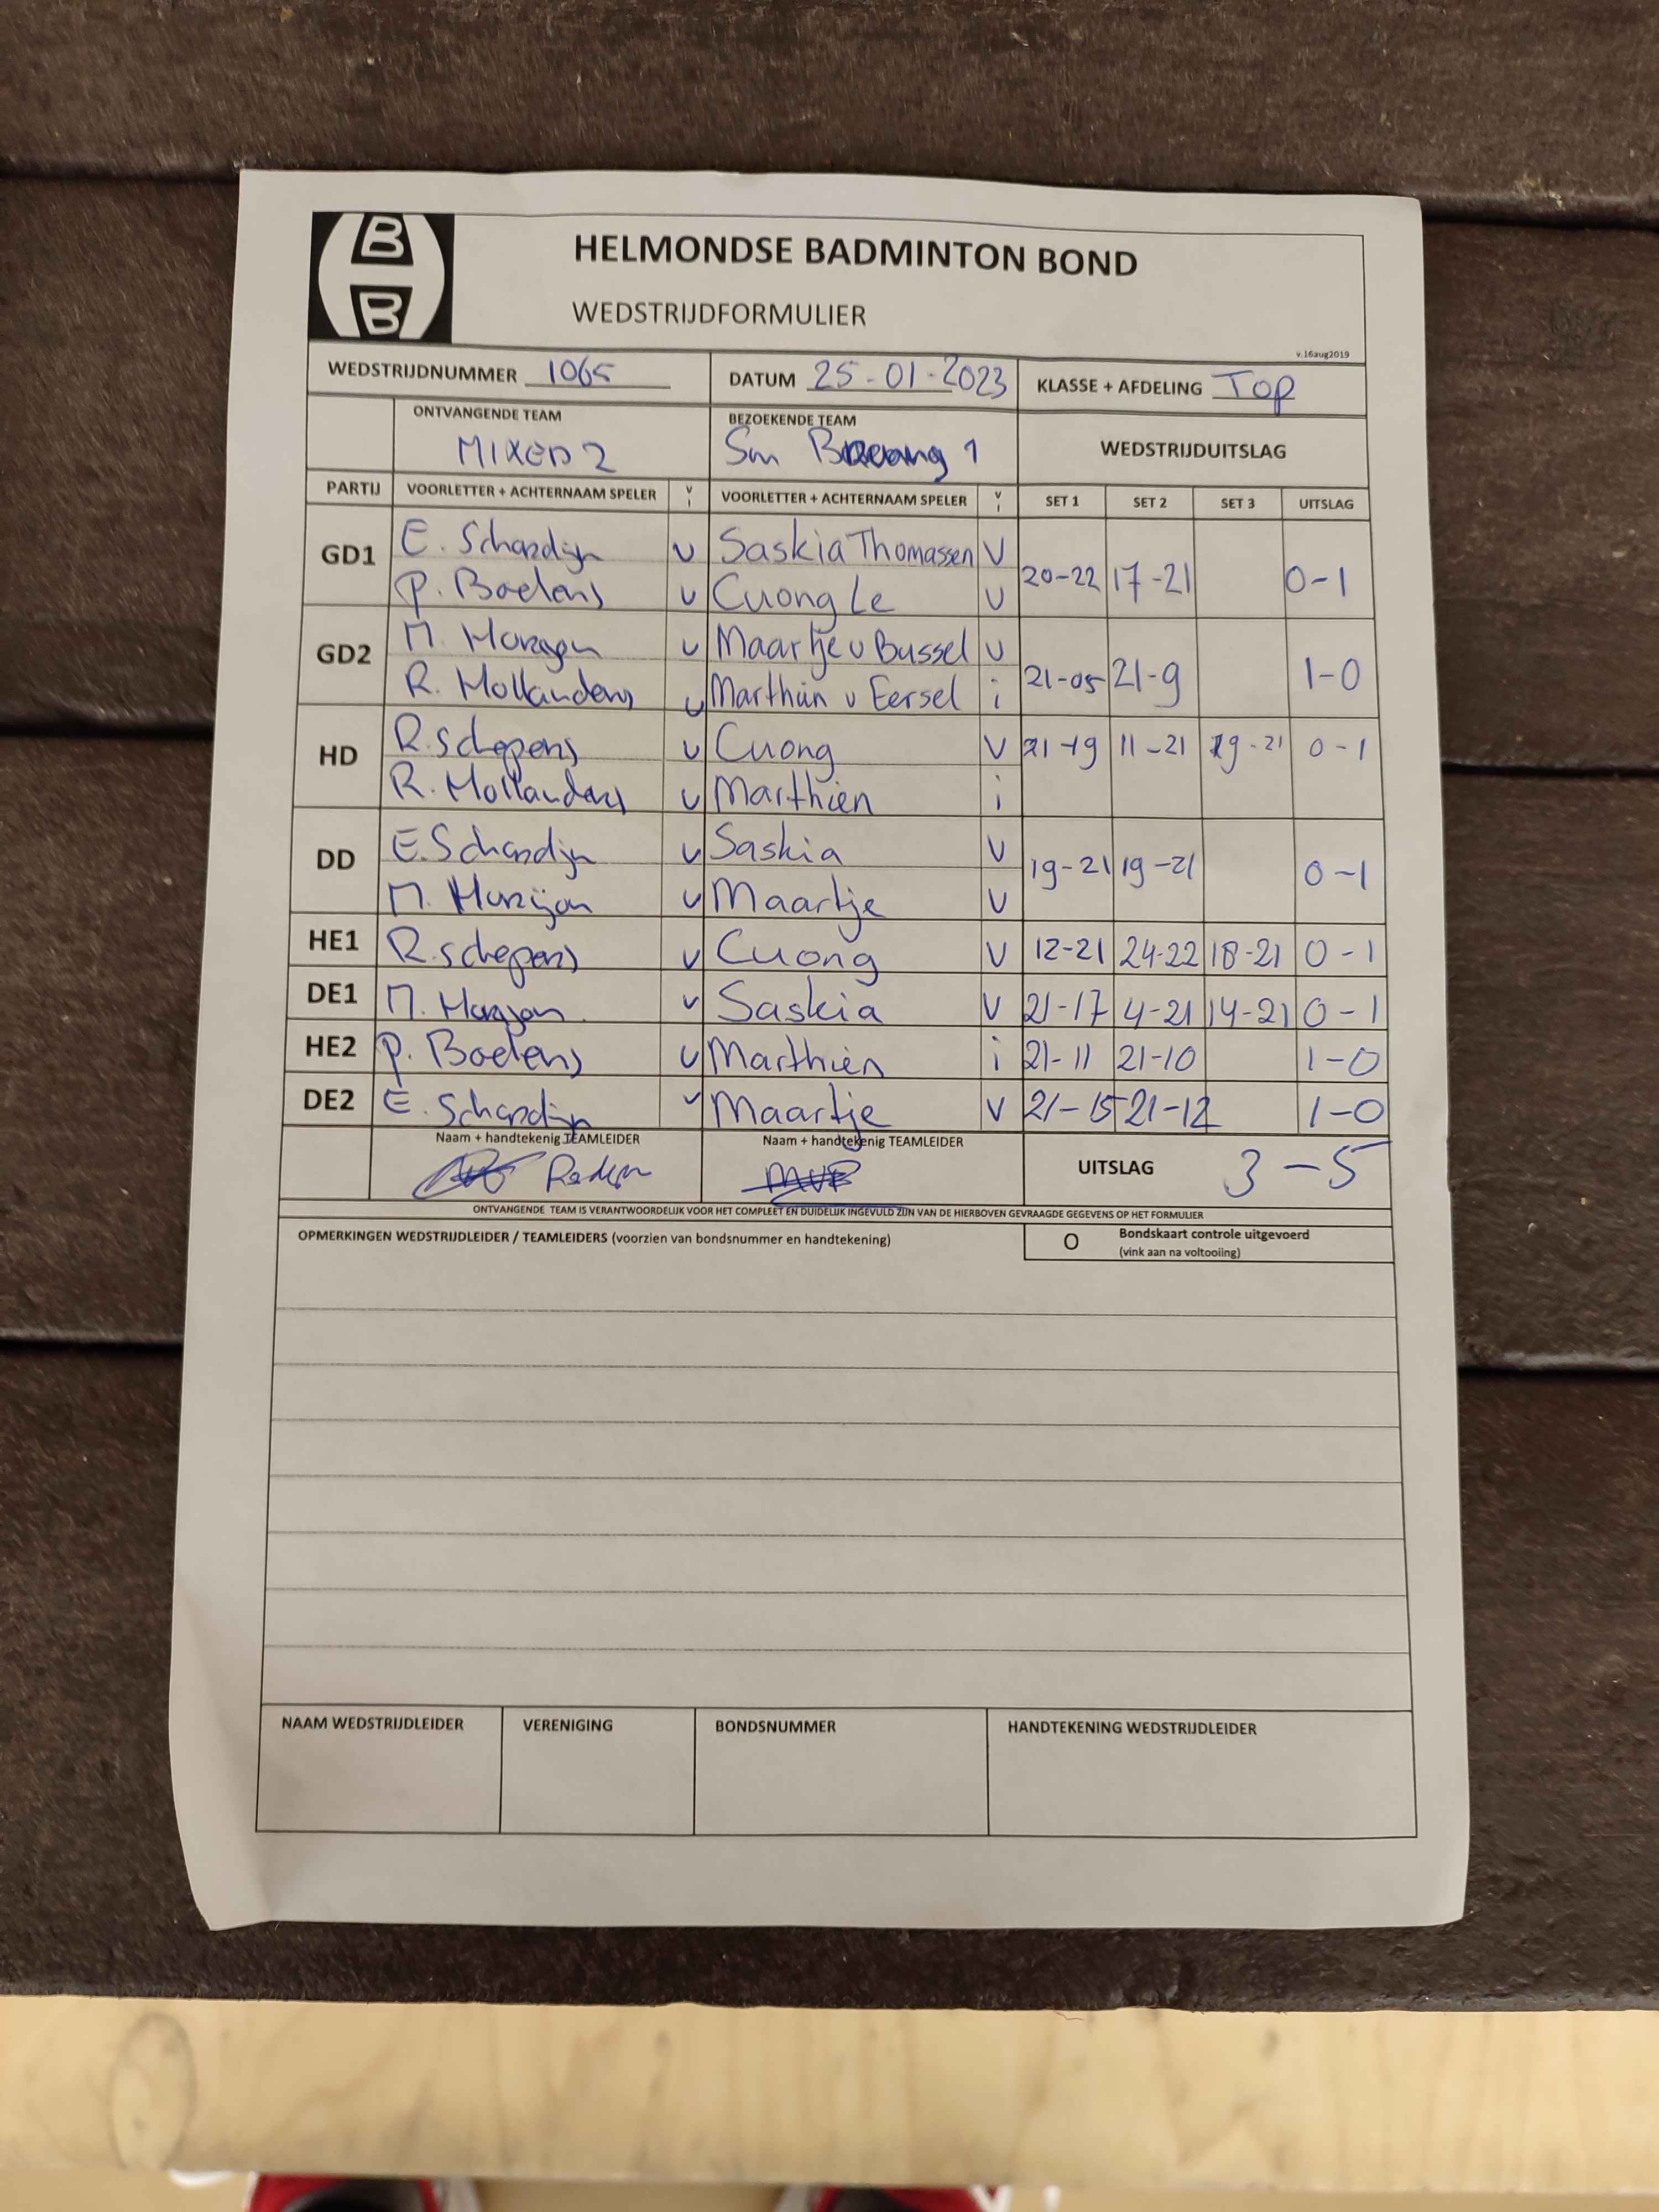 B
B
HELMONDSE BADMINTON BOND
WEDSTRIJDFORMULIER
v.16aug2019
WEDSTRIJDNUMMER 1065 DATUM 25-01-2023 KLASSE + AFDELING TOP
ONTVANGENDE TEAM BEZOEKENDE TEAM WEDSTRIJDUITSLAG
MIXED 2 1
PARTIJ VOORLETTER + ACHTERNAAM SPELER V I VOORLETTER + ACHTERNAAM SPELER V I SET 1 SET 2 SET 3 UITSLAG
GD1 E. Schardijn v Saskia Thomassen V 20-22 17-21 0-1
P. Boelens v Cuong Le v
GD2 M. v Maartje v Bussel v 21-05 21-9 1-0
R. Hollanders v Marthien v Eersel i
HD R. Schepens v Cuong V 21-19 11-21 19-21 0-1
R. Hollanders v Marthien i
DD E. Schardijn v Saskia V 19-21 19-21 0-1
M. v Maartje V
HE1 R. Schepens v Cuong V 12-21 24-22 18-21 0-1
DE1 M. v Saskia V 21-17 4-21 14-21 0-1
HE2 P. Boelens v Marthien i 21-11 21-10 1-0
DE2 E. Schardijn v Maartje V 21-15 21-12 1-0
Naam + handtekenig TEAMLEIDER Naam + handtekenig TEAMLEIDER UITSLAG 3-5
ONTVANGENDE TEAM IS VERANTWOORDELIJK VOOR HET COMPLEET EN DUIDELIJK INGEVULD ZIJN VAN DE HIERBOVEN GEVRAAGDE GEGEVENS OP HET FORMULIER
OPMERKINGEN WEDSTRIJDLEIDER / TEAMLEIDERS (voorzien van bondsnummer en handtekening) O Bondskaart controle uitgevoerd
(vink aan na voltooiing)
NAAM WEDSTRIJDLEIDER VERENIGING BONDSNUMMER HANDTEKENING WEDSTRIJDLEIDER